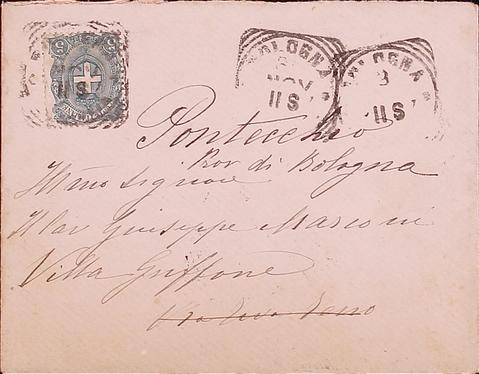 5 5
BOLOGNA
NOV
11 S
BOLOGNA
3
11 S
11 S
Pontecchio
Prov di Bologna
Illmo Signore
Il Cav Giuseppe Marconi
Villa Griffone